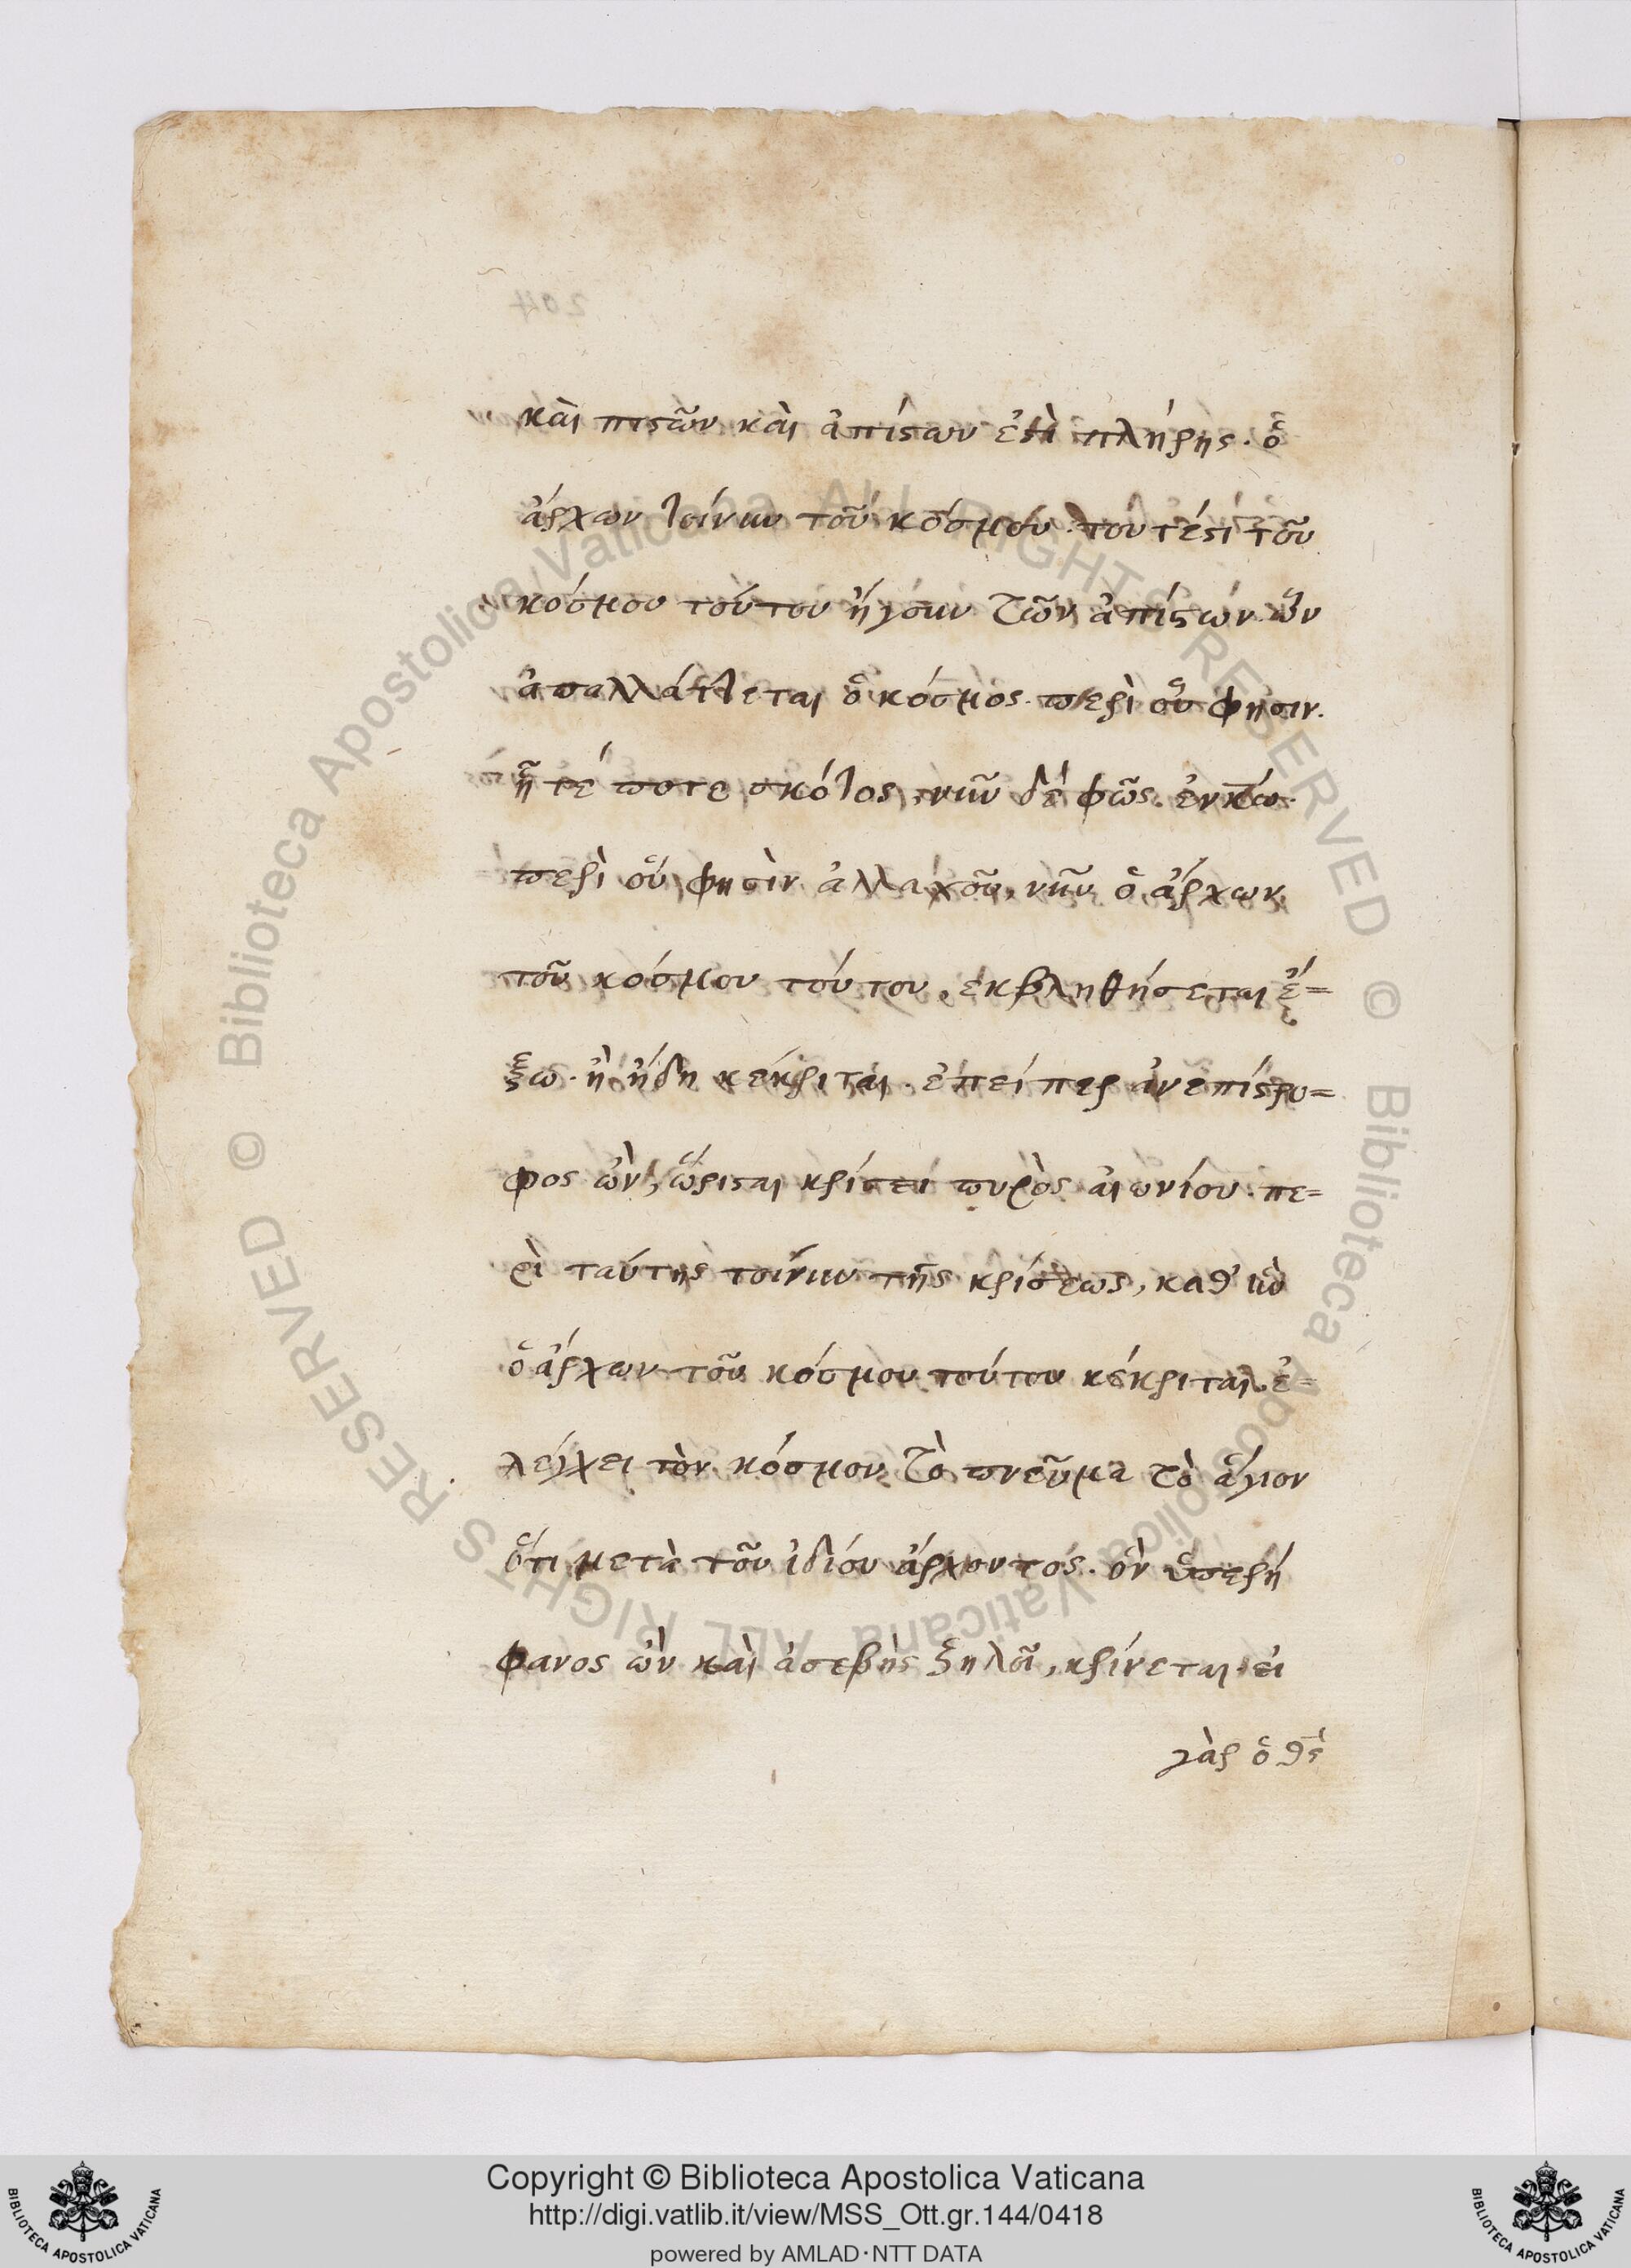 καὶ πιστῶν καὶ ἀπίστων ἐστὶ πλήρης. ὁ
ἄρχων τοίνυν τοῦ κόσμου. τουτέστι τοῦ
κόσμου τούτου ἤγουν τῶν ἀπίστων. ὧν
ἀπαλλάττεται ὁ κόσμος. περὶ οὗ φησιν.
ἦτέ ποτε σκότος, νῦν δὲ φῶς ἐν κω.
περὶ οὗ φησὶν ἀλλαχοῦ, νῦν ὁ ἄρχων
τοῦ κόσμου τούτου, ἐκβληθήσεται ἔ=
ξω. ἢ ἤδη κέκριται. ἐπείπερ ἀνεπίστρο=
φος ὢν, ὥρισται κρίσει πυρὸς αἰωνίου. πε=
ρὶ ταύτης τοίνυν τῆς κρίσεως, καθ' ἣν
ὁ ἄρχων τοῦ κόσμου τούτου κέκριται. ἐ=
λέγχει τὸν κόσμον τὸ πνεῦμα τὸ ἅγιον
ὅτι μετὰ τοῦ ἰδίου ἄρχοντος. ὃν ὑπερή
φανος ὢν καὶ ἀσεβὴς ζηλοῖ, κρίνεται. εἰ
γὰρ ὁ θς
204
Biblioteca Apostolica Vaticana ALL RIGHTS RESERVED ©
Biblioteca Apostolica Vaticana ALL RIGHTS RESERVED ©
Copyright © Biblioteca Apostolica Vaticana
http://digi.vatlib.it/view/MSS_Ott.gr.144/0418
powered by AMLAD·NTT DATA
BIBLIOTECA APOSTOLICA VATICANA
BIBLIOTECA APOSTOLICA VATICANA